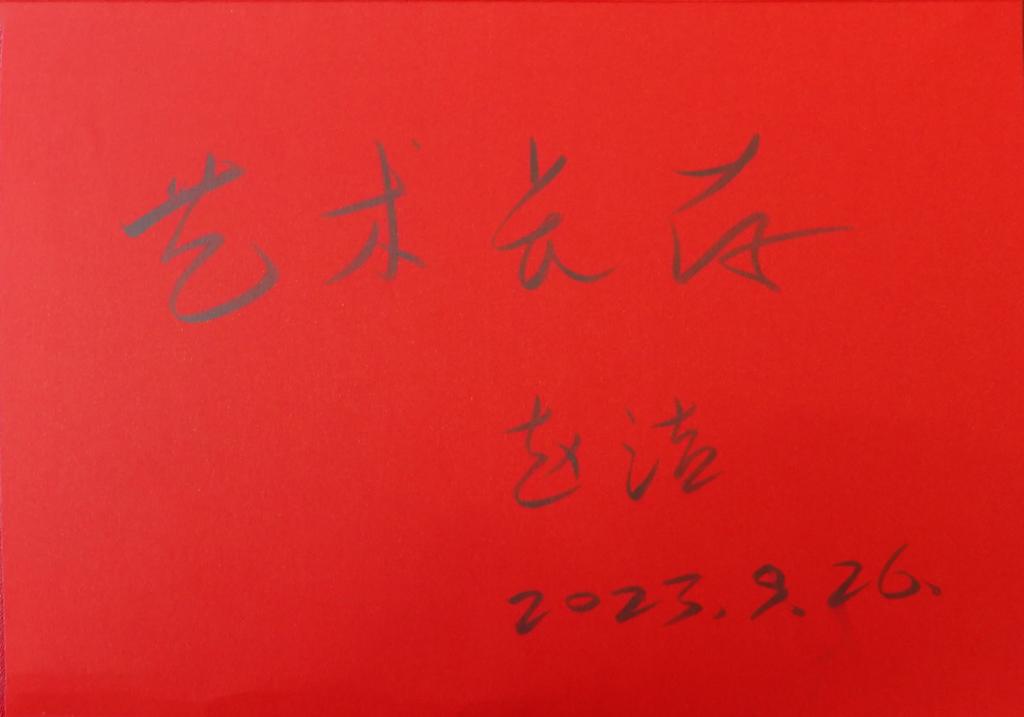 艺术长存
赵洁
2023.9.26.